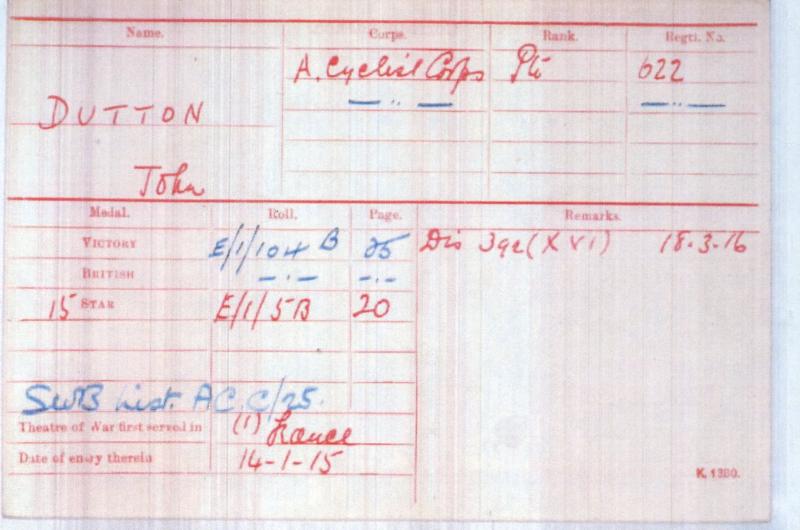 Name. Corps. Rank. Regtl. No.
A. Cyclist Corps Pte 622
— " — — " —
DUTTON
John
Medal. Roll. Page. Remarks.
VICTORY E/1/104 B 25 Dis 392 (XVI) 18.3.16
BRITISH — " — — " —
15 STAR E/1/5B 20
SWB List. AC C/25.
Theatre of War first served in (1) France
Date of entry therein 14-1-15
K. 1380.